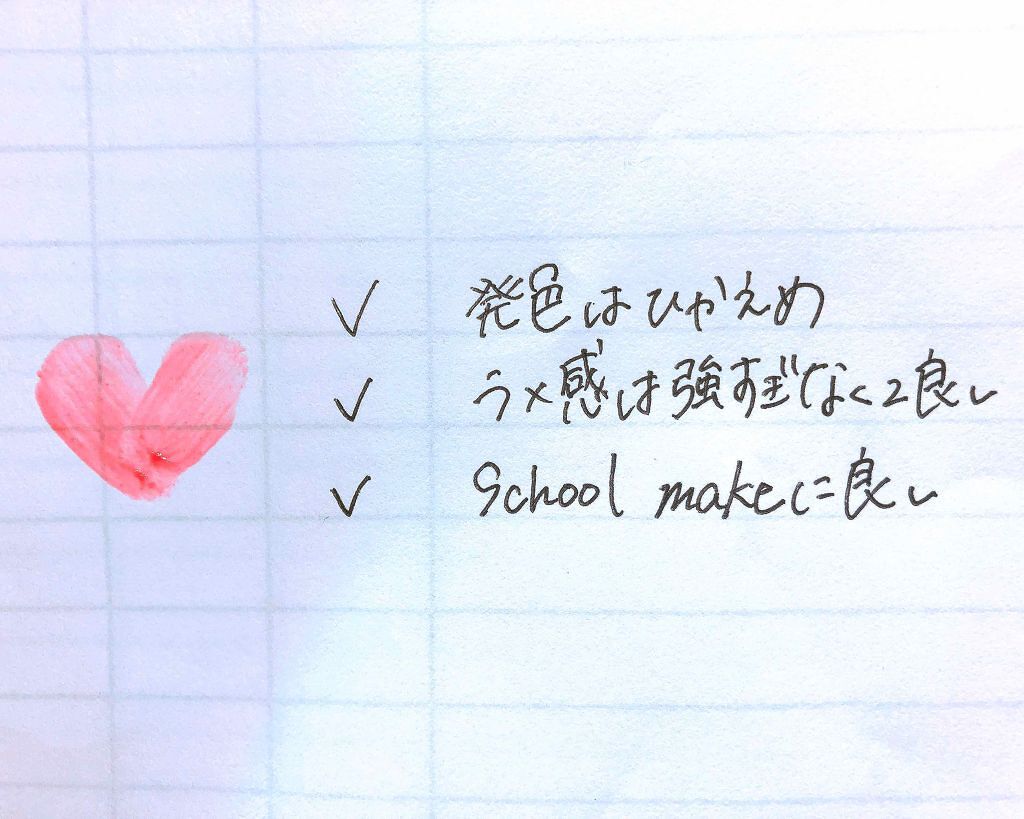 ✓ 発色はひかえめ
✓ ラメ感は強すぎなくて良し
✓ School makeに良し